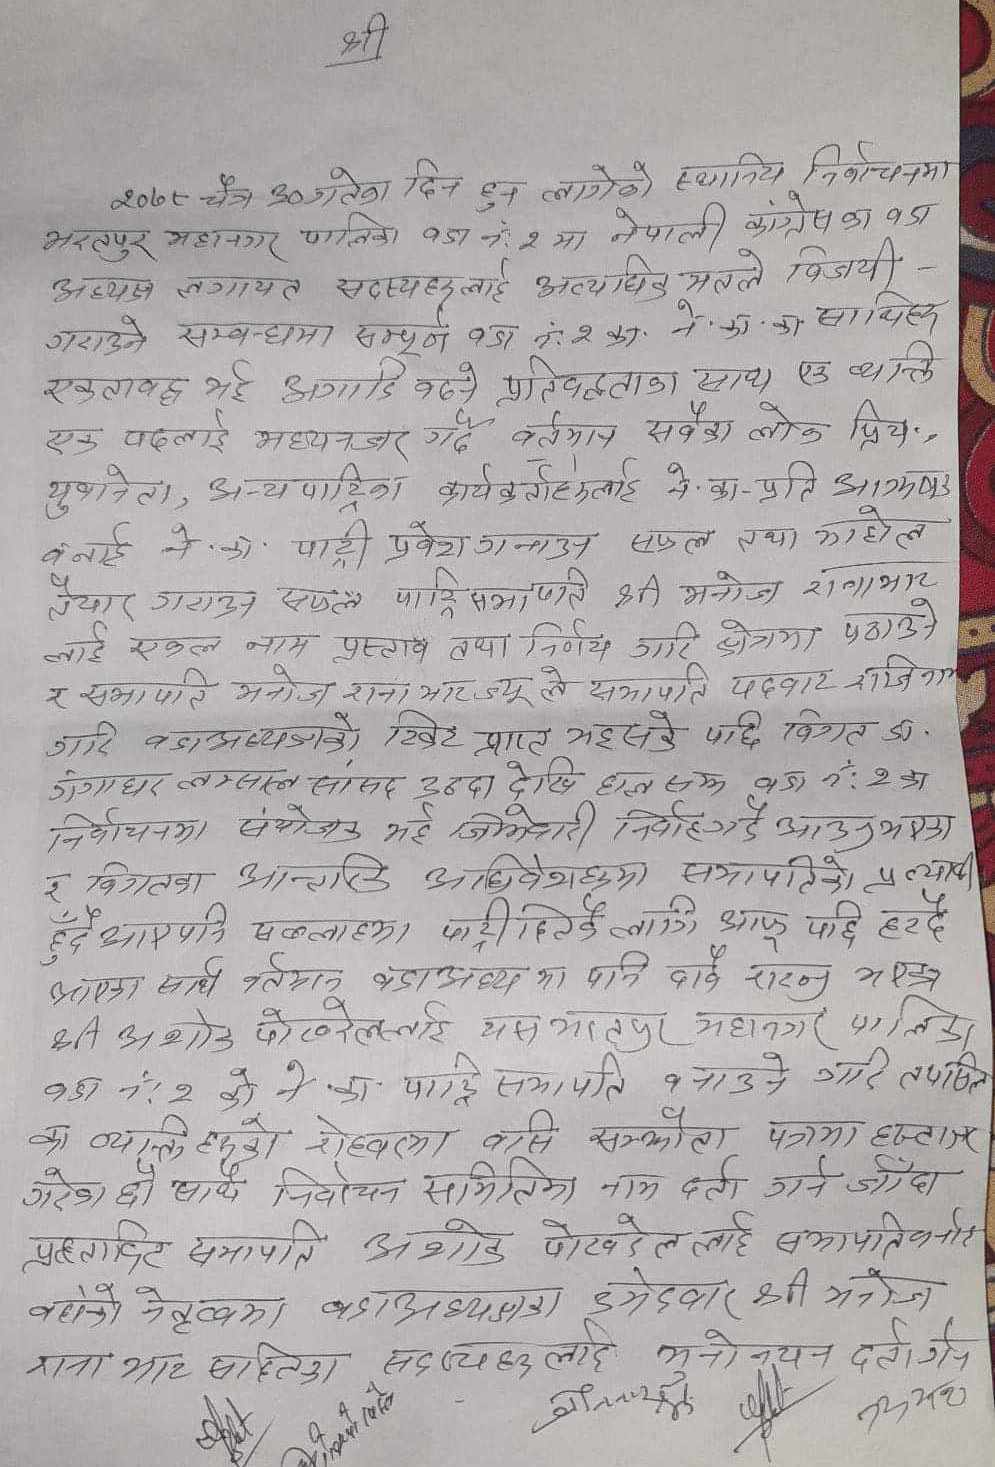 श्री
२०७८ चैत्र ३० गतेका दिन हुन लागेको स्थानिय निर्वाचनमा
भरतपुर महानगर पालिका वडा नं. २ मा नेपाली कांग्रेसका वडा
अध्यक्ष लगायत सदस्यहरुलाई अत्याधिक मतले विजयी -
गराउने सम्बन्धमा सम्पूर्ण वडा नं. २ का ने. का. का साथिहरु
एकतावद्ध भई अगाडि बढ्ने प्रतिवद्धताका साथ एक व्यक्ति
एक पदलाई मध्यनजर गर्दै वर्तमान सबैका लोक प्रिय,
युवानेता, अन्य पार्टिका कार्यकर्ताहरुलाई ने. का. प्रति आकर्षण
बनाई ने. का. पार्टी प्रवेश गराउन सफल तथा माहोल
तैयार गराउन सफल पार्टि सभापति श्री मनोज रानाभाट
लाई एकल नाम प्रस्ताव तथा निर्णय गरि क्षेत्रमा पठाउने
र सभापति मनोज रानाभाट ज्यूले सभापति पदबाट राजिनामा
गरि वडाअध्यक्षको टिकेट प्राप्त भइसके पछि विगत डा.
गंगाधर लम्साल सांसद उठ्दा देखि हाल सम्म वडा नं: २ का
निर्वाचनमा संयोजक भई जिम्मेवारी निर्वाह गर्दै आउनुभएका
र विगतका आन्तरिक अधिवेशनहरुमा सभापतिको प्रत्याशी
हुँदै आएपनि पार्टी हितकै लागि आफू पछि हट्दै
आएका साथै वर्तमान वडाअध्यक्षमा पनि दावि राख्नु भएका
श्री अशोक पोखरेललाई यस भरतपुर महानगर पालिका
वडा नं: २ को ने. का. पार्टि सभापति बनाउने गरि तपशिल
का व्यक्तिहरुको रोहवरमा बसि सम्झौता पत्रमा हस्ताक्षर
गरेका छौं साथै निर्वाचन समितिमा नाम दर्ता गर्न जाँदा
प्रस्तावित सभापति अशोक पोखरेललाई सभापति बनाई
वहाँको नेतृत्वमा वडाअध्यक्षका उमेदवार श्री मनोज
राना भाट सहितका सदस्यहरुलाई मनोनयन दर्ता गर्न